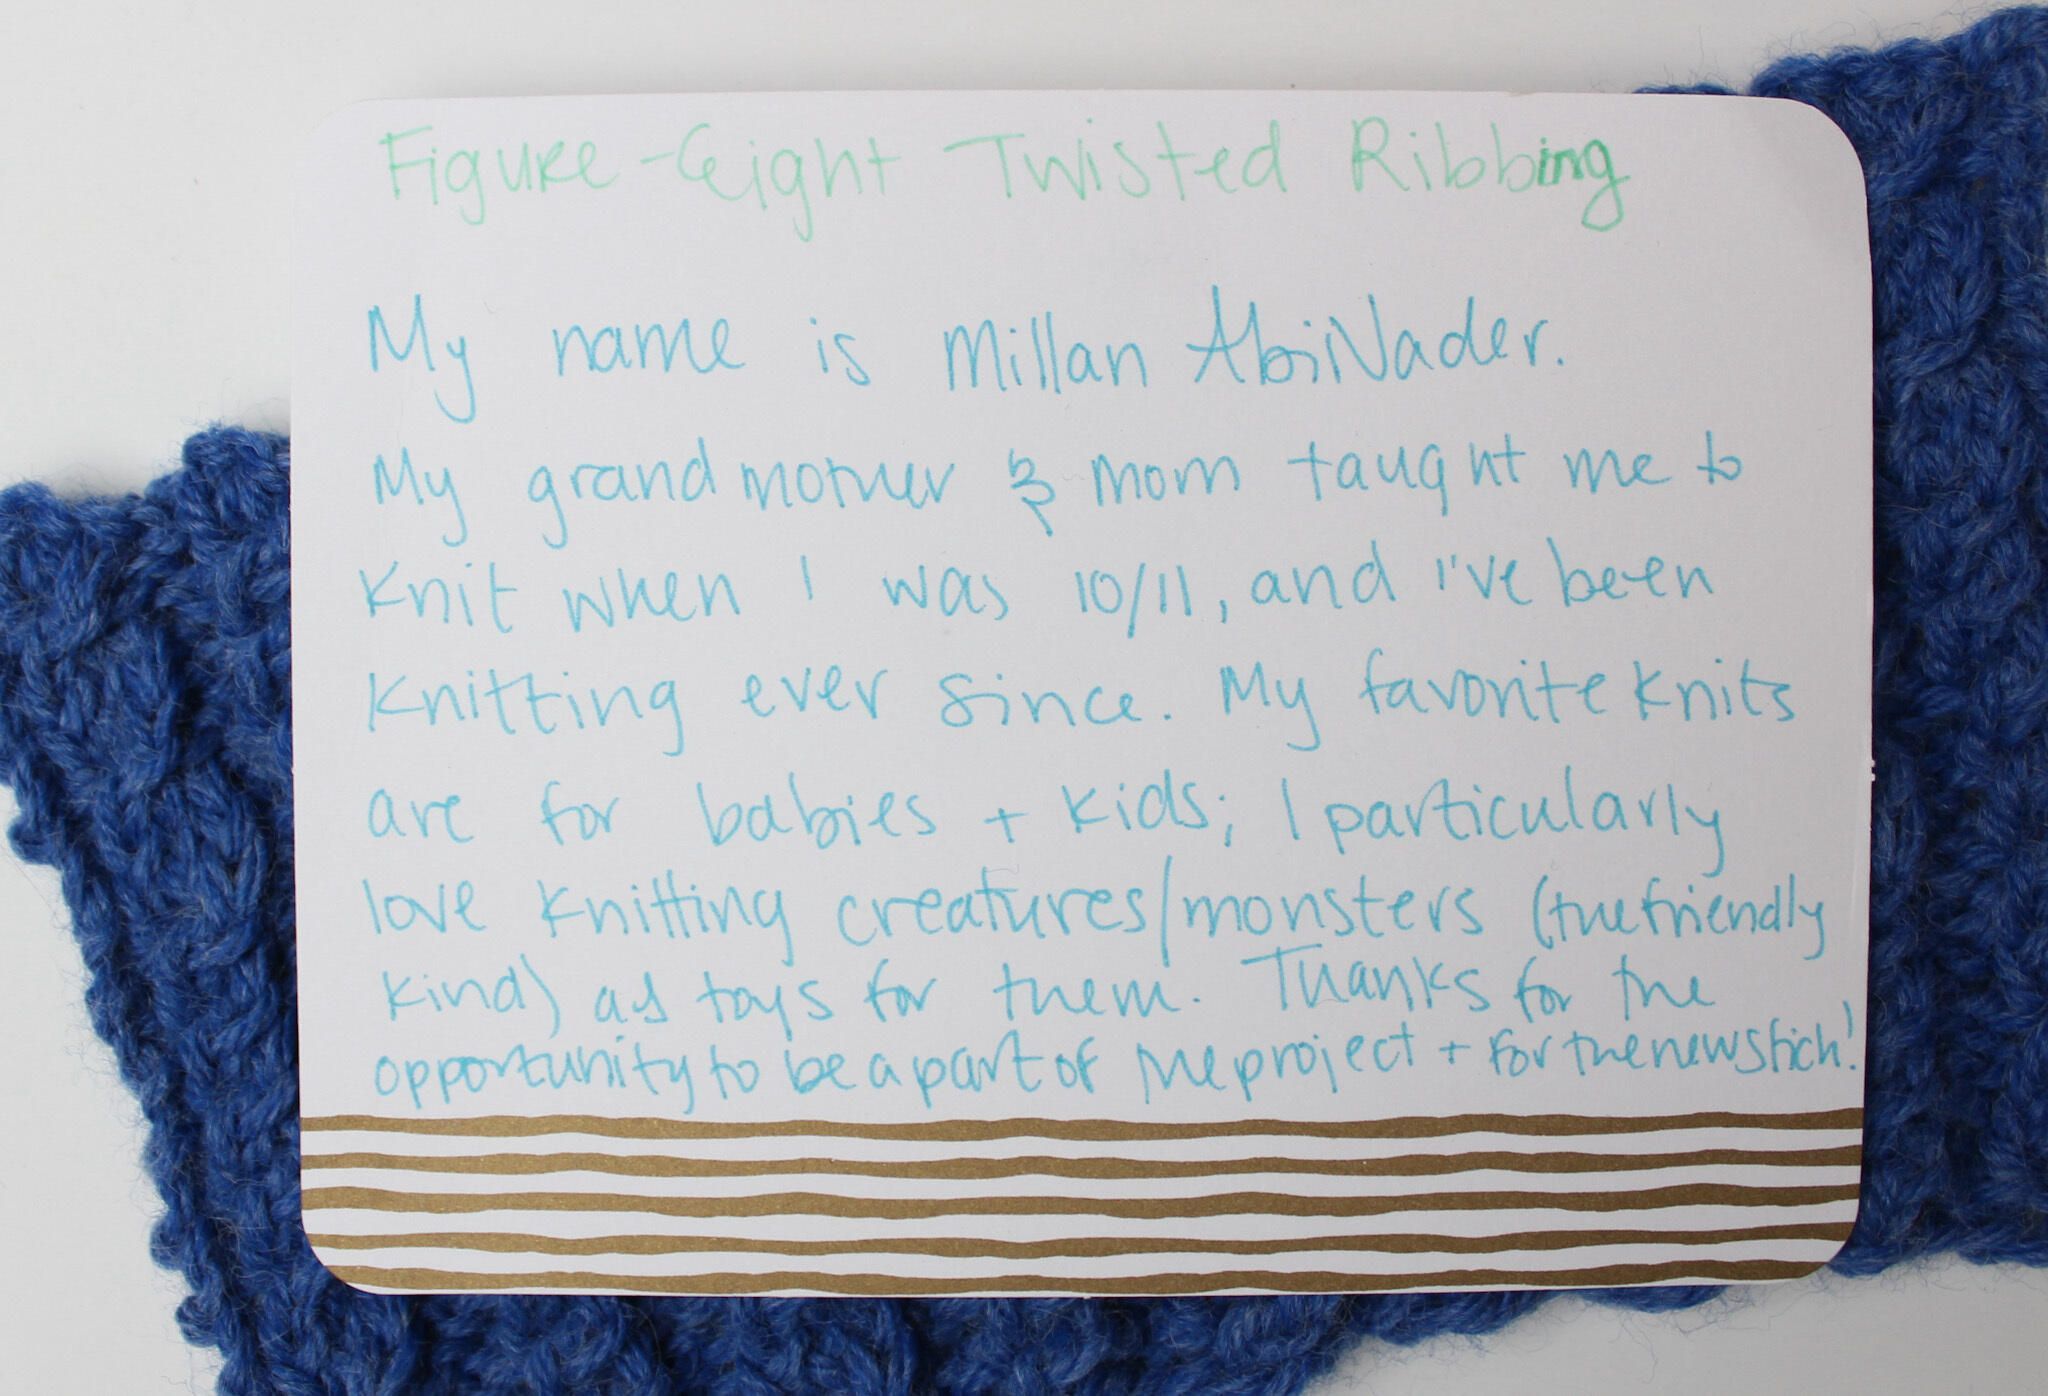 Figure-Eight Twisted Ribbing
My name is Millan AbiNader.
My grandmother & mom taught me to
knit when I was 10/11, and I've been
knitting ever since. My favorite knits
are for babies + kids; I particularly
love knitting creatures/monsters (the friendly
kind) as toys for them. Thanks for the
opportunity to be a part of the project + for the new stich!